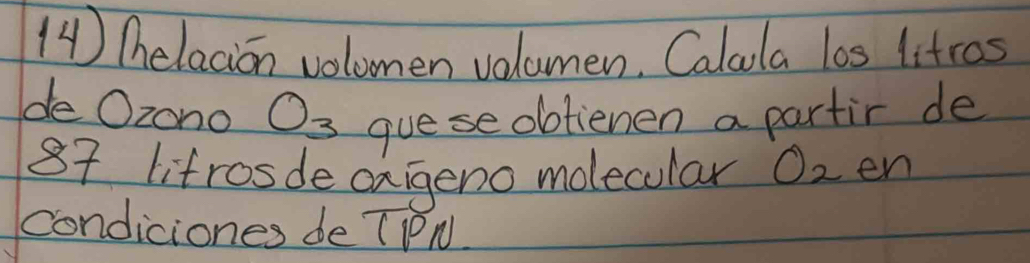 14) Relación volumen volumen. Calcula los litros
de Ozono O₃ que se obtienen a partir de
87 litros de oxígeno molecular O₂ en
condiciones de TPN.